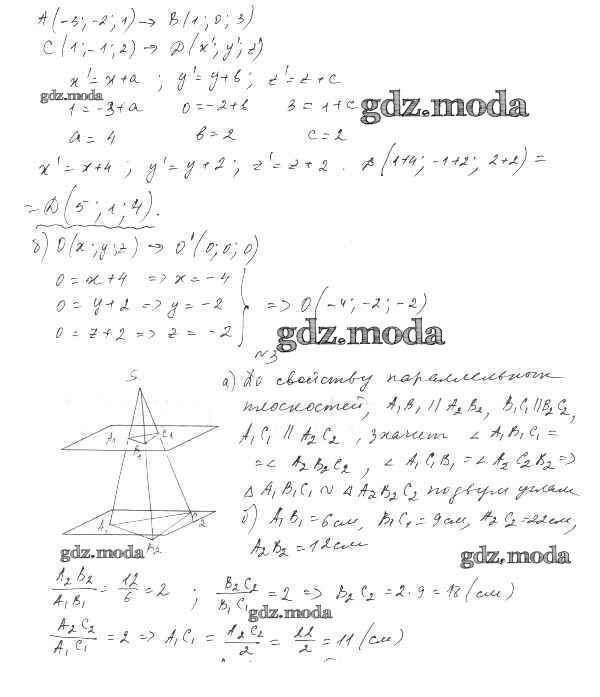 A(-3; -2; 1) → B(1; 0; 3)
C(1; -1; 2) → D(x'; y'; z')
x' = x + a ; y' = y + b ; z' = z + c
gdz.moda
1 = -3 + a 0 = -2 + b 3 = 1 + c gdz.moda
a = 4 b = 2 c = 2
x' = x + 4 ; y' = y + 2 ; z' = z + 2 . D(1+4; -1+2; 2+2) =
= D(5; 1; 4).
б) O(x; y; z) → O'(0; 0; 0)
0 = x + 4 => x = -4
0 = y + 2 => y = -2 => O(-4; -2; -2)
0 = z + 2 => z = -2 gdz.moda
N 3
S
а) По свойству параллельных
плоскостей, A₁B₁ || A₂B₂, B₁C₁ || B₂C₂,
A₁C₁ || A₂C₂, значит ∠ A₁B₁C₁ =
= ∠ A₂B₂C₂, ∠ A₁C₁B₁ = ∠ A₂C₂B₂ =>
△ A₁B₁C₁ ~ △ A₂B₂C₂ по двум углам
б) A₁B₁ = 6см, B₁C₁ = 9см, A₂C₂ = 22см,
A₂B₂ = 12см
A₁ C₁
B₁
A₁ C₂
A₂
gdz.moda gdz.moda
A₂B₂/A₁B₁ = 12/6 = 2 ; B₂C₂/B₁C₁ = 2 => B₂C₂ = 2·9 = 18 (см)
gdz.moda
A₂C₂/A₁C₁ = 2 => A₁C₁ = A₂C₂/2 = 22/2 = 11 (см)